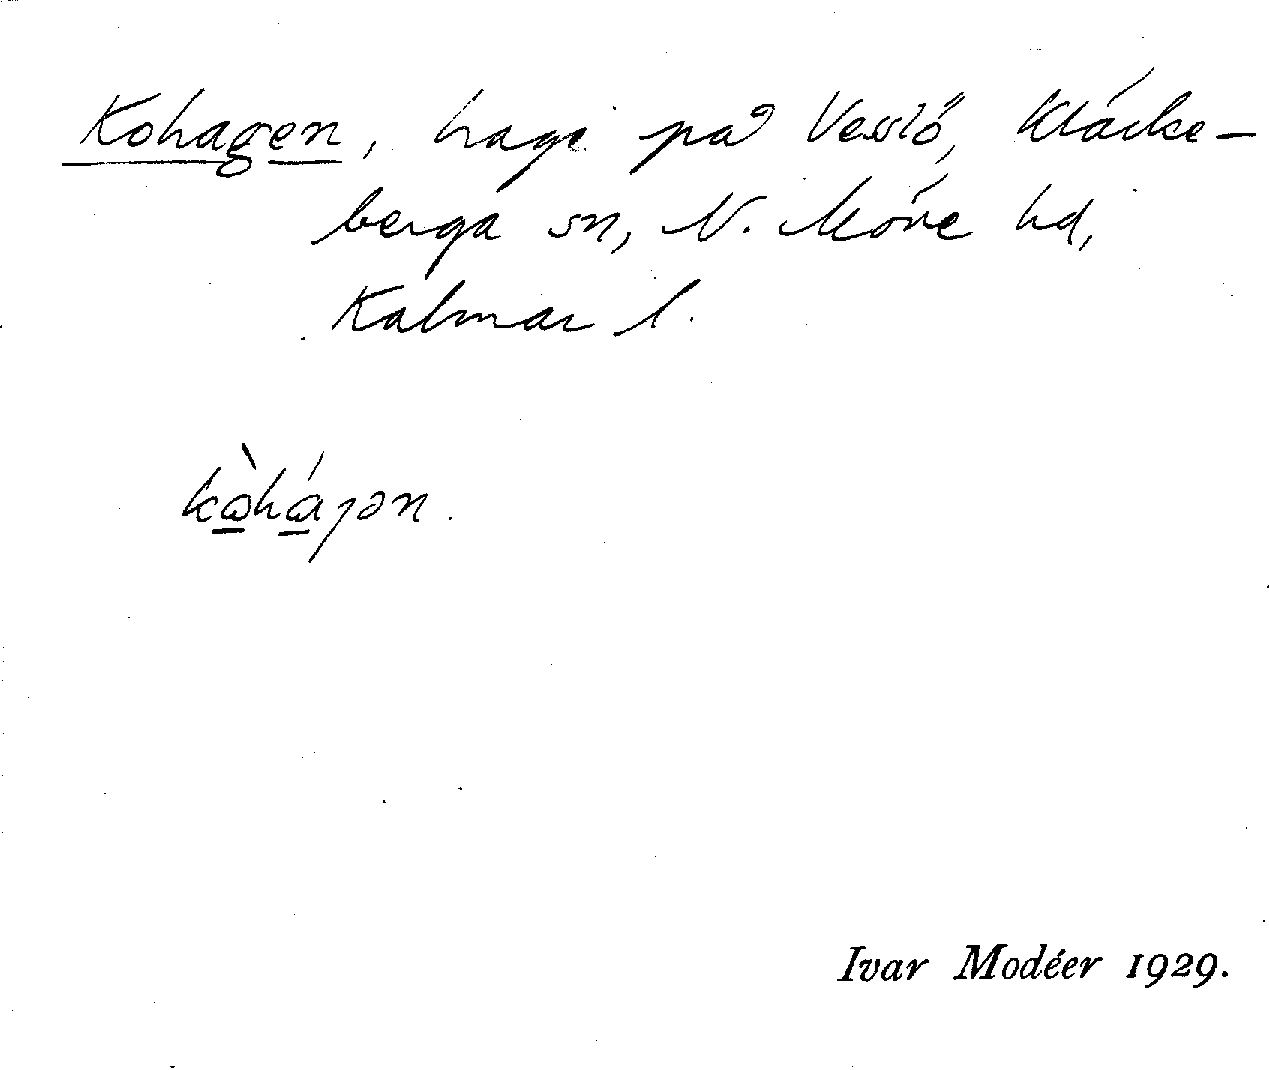 Kohagen, hage på Vesslö, Kläcke-
berga sn, N. Möre hd,
Kalmar l.
kὼhɑ́ȷən.
Ivar Modéer 1929.